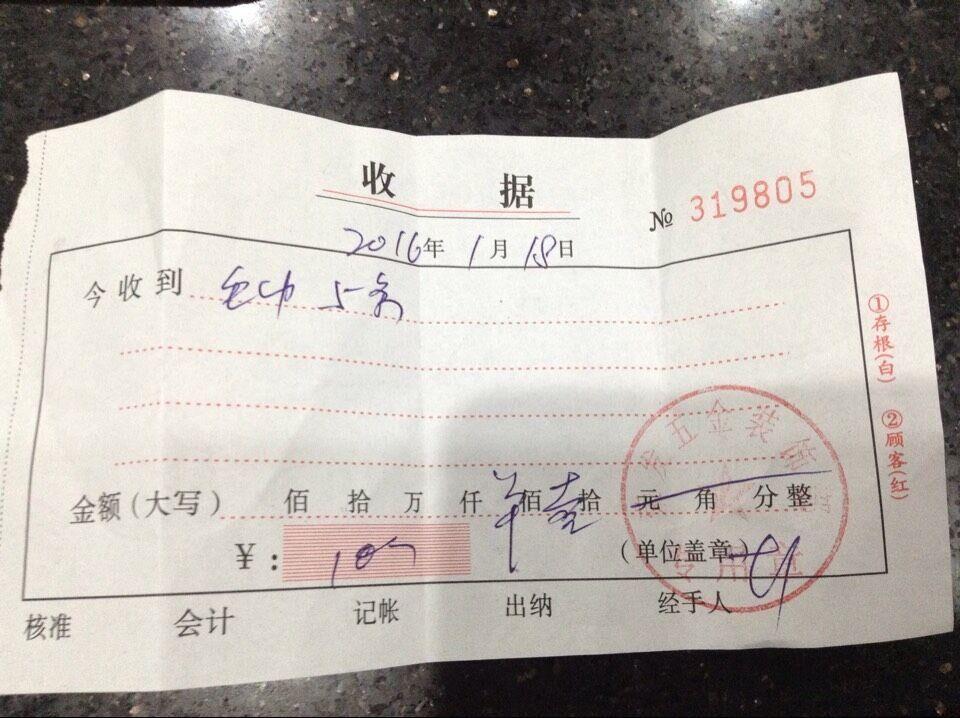 收 据
№ 319805
2016年 1月 18日
今收到 毛巾 5条
金额(大写) 佰 拾 万 仟 佰 壹 拾 元 角 分整
¥: 10
(单位盖章)
核准 会计 记帐 出纳 经手人
①存根(白)
②顾客(红)
五金装
专用章